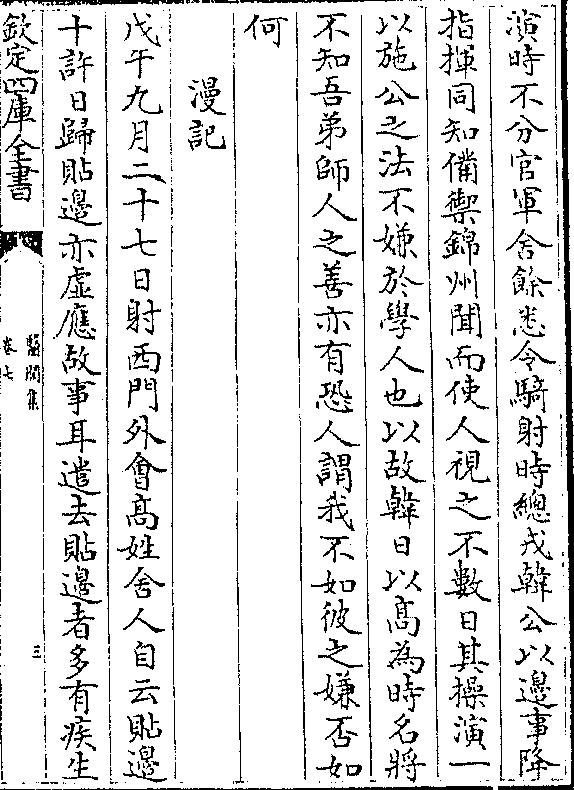 演時不分官軍舍餘悉令騎射時總戎韓公以邊事降
指揮同知備禦錦州聞而使人視之不數日其操演一
以施公之法不嫌於學人也以故韓日以髙為時名將
不知吾弟師人之善亦有恐人謂我不如彼之嫌否如
何
漫記
戊午九月二十七日射西門外會髙姓舍人自云貼邊
十許日歸貼邊亦虛應故事耳遣去貼邊者多有疾生
欽定四庫全書
醫閭集
卷七
三